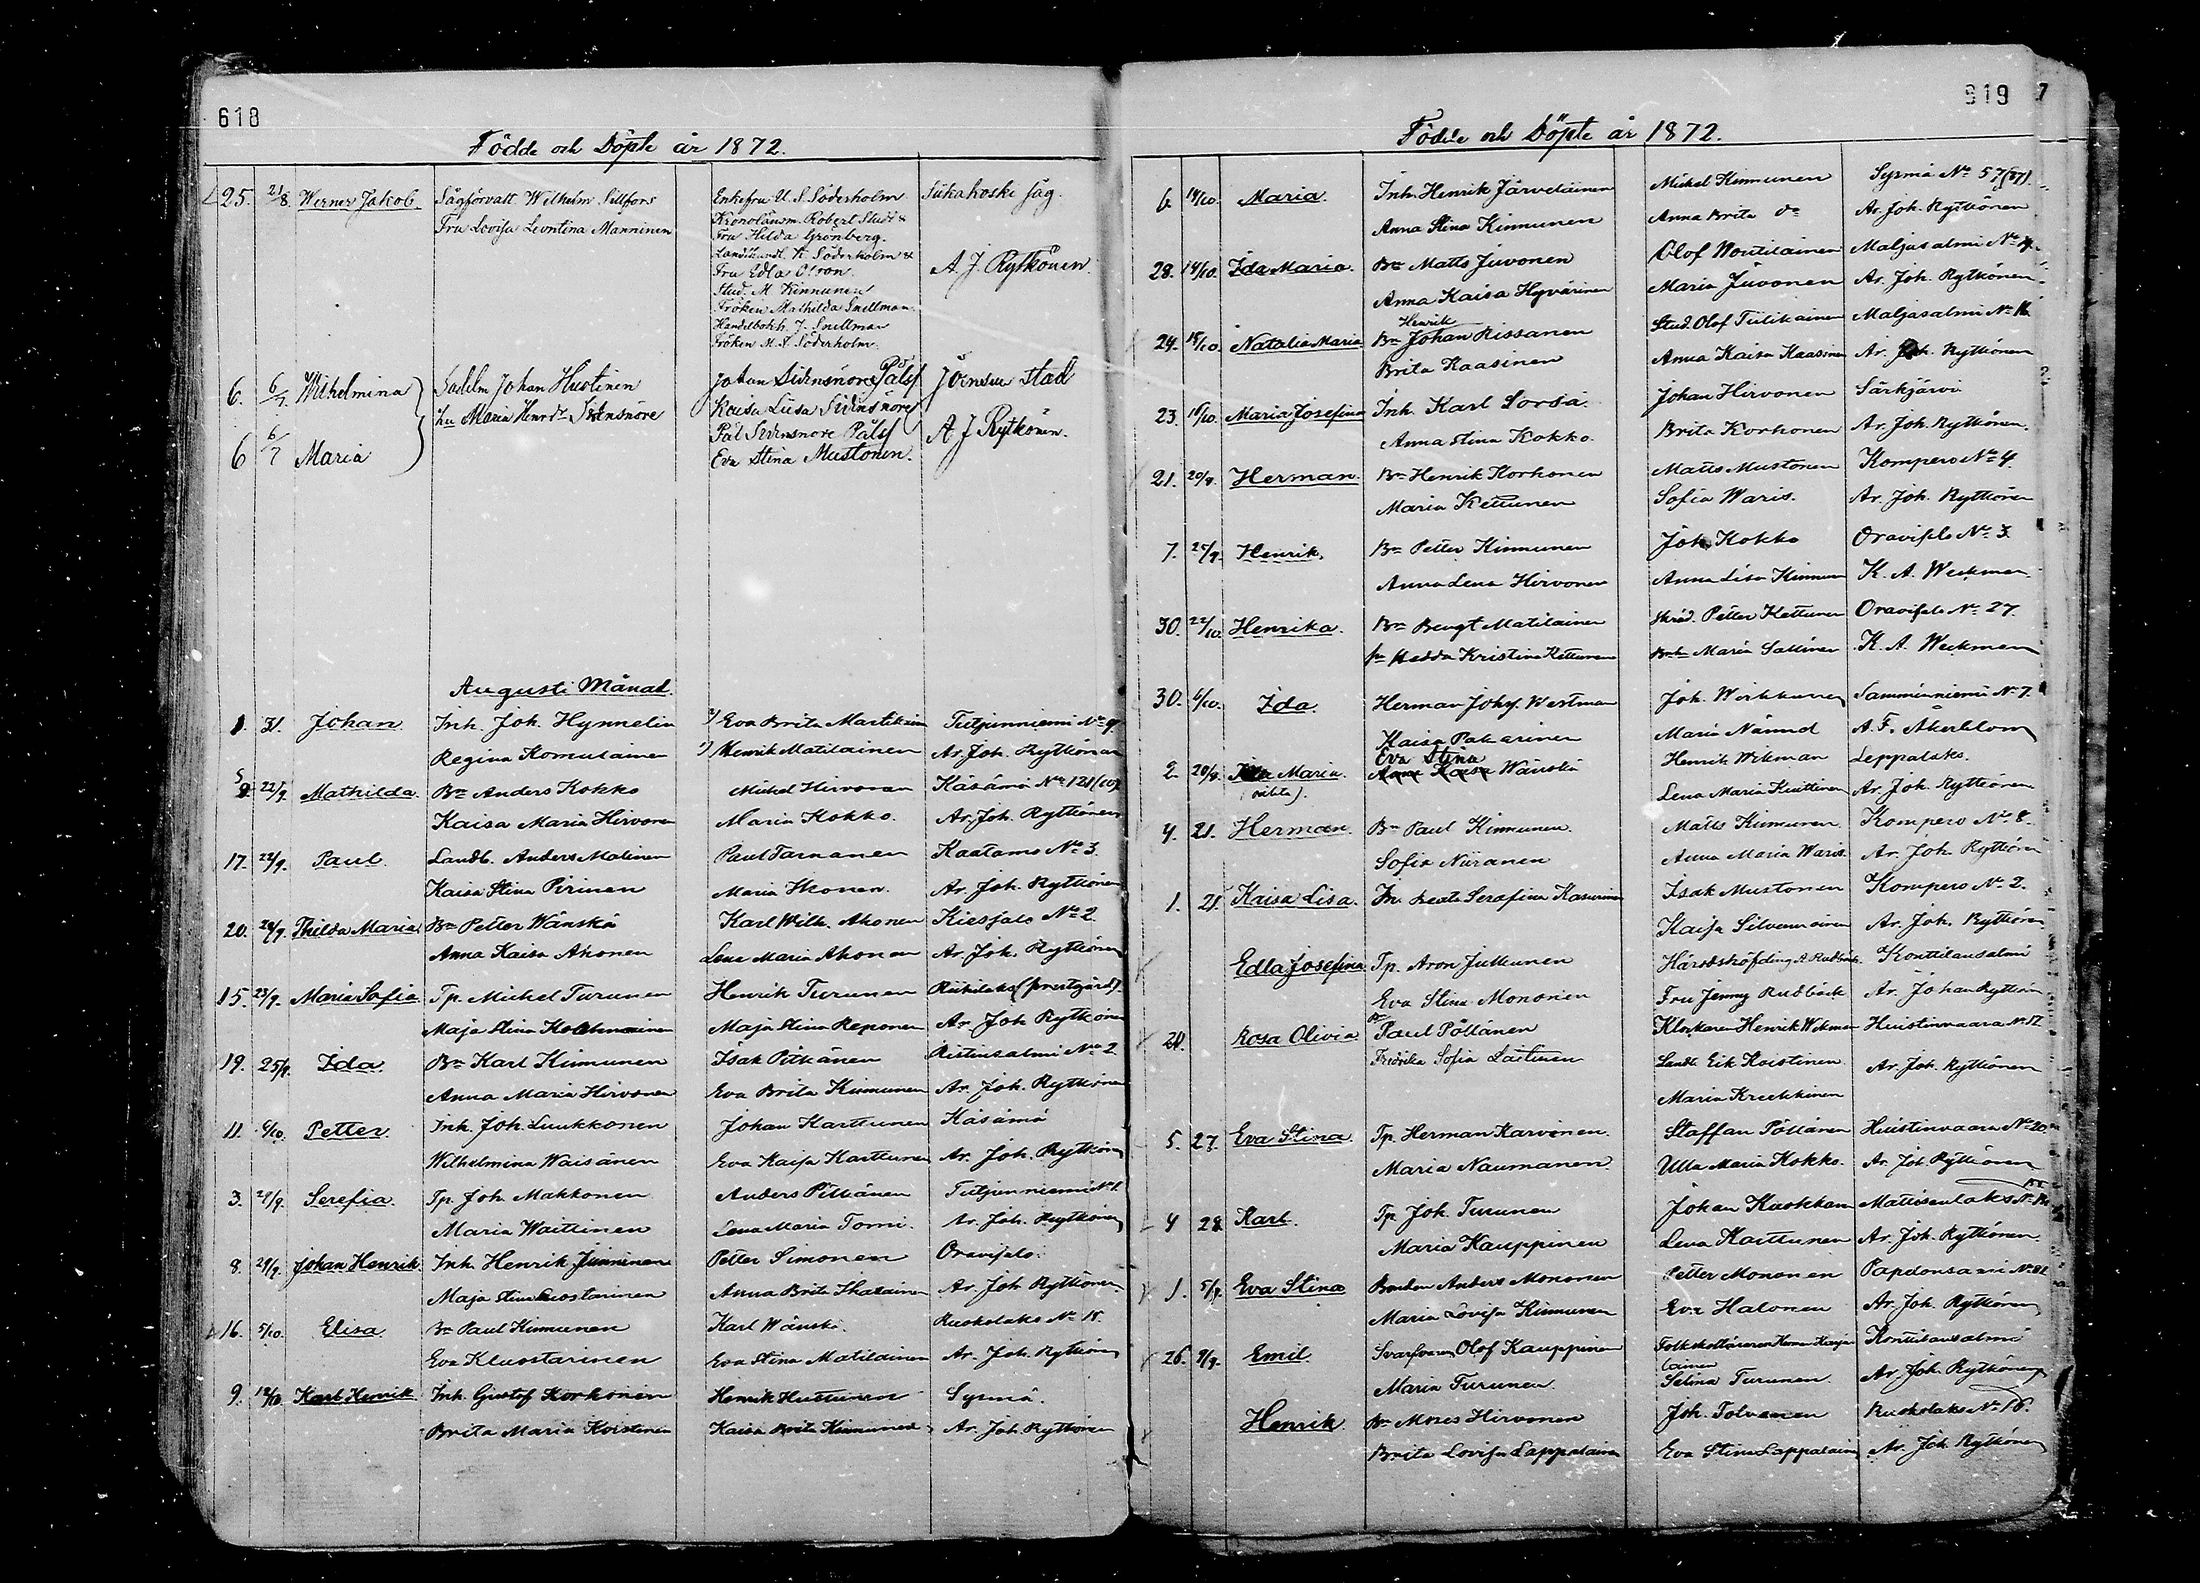 618
Födde och Döpte år 1872.
25. 21/8. Werner Jakob. Sågförvalt Wilhelm Sillfors Enkefru U. S. Söderholm Siikakoski såg.
Fru Lovisa Leontina Manninen Kronolänsm. Robert &
Fru Hilda Grönberg.
K. Söderholm &
Fru Edla A. J. Rytkönen.
Stud. M. Kinnunen
Fröken Mathilda Snellman
J. Snellman
Fröken M. S. Söderholm.
6. 6/7. Wilhelmina Johan Huotinen Johan Sidensnöre Pålsf Joensuu stad
Maria Sidensnöre Kaisa Liisa Sidensnöre
6 6/7 Maria Pål Sidensnöre Pålsf A J Rytkönen.
Eva Stina Mustonen.
Augusti Månad.
1. 31. Johan Inh. Joh. Hynnelin Eva Brita Martikain Tutjunniemi No 9.
Regina Komulainen Henrik Matilainen Ar. Joh. Rytkönen
22/9. Mathilda. Bn Anders Kokko Michel Hirvonen Käsämä No 121
Kaisa Maria Hirvonen Maria Kokko. Ar. Joh. Rytkönen
17. 22/9. Paul. Landb. Anders Malinen Paul Tarnanen Kaatamo No 3.
Kaisa Stina Pirinen Maria Ikonen. Ar. Joh. Rytkönen
20. 24/9. Thilda Maria Bn Petter Wänskä Karl Wilh. Ahonen Kiesjalo No 2.
Anna Kaisa Ahonen Lena Maria Ahonen Ar. Joh. Rytkönen
15. 23/9. Maria Sofia Tp. Michel Turunen Henrik Turunen Riihilaks (prestgård).
Maja Stina Maja Stina Reponen Ar. Joh Rytkönen
19. 25/9. Ida Bn Karl Kinnunen Isak Pitkänen Ristinsalmi No 2
Anna Maria Hirvonen Eva Brita Kinnunen Ar. Joh. Rytkönen
11. 6/10. Petter. Inh. Joh. Luukkonen Johan Karttunen Käsämä
Wilhelmina Waisänen Eva Kaisa Karttunen Ar. Joh. Rytkönen
3. 29/9. Serefia. Tp. Joh. Makkonen Anders Pitkänen Tutjunniemi No 1.
Maria Waittinen Lena Maria Tomi. Ar. Joh. Rytkönen
8. 29/9. Johan Henrik. Inh. Henrik Jumminen Petter Simonen Oravisalo.
Maja Stina Luostarinen Anna Brita Ikalainen Ar. Joh Rytkönen.
16. 5/10. Elisa Bn Paul Kinnunen Karl Wänskä. Ruokolaks No 18.
Eva Kluostarinen Eva Stina Matilainen Ar. Joh. Rytkönen
9. 12/10 Karl Henrik Inh. Gustof Korhonen Henrik Huttunen Sysmä.
Brita Maria Koistinen Kaisa Brita Kinnunen Ar. Joh. Rytkönen
619
7
Födde och Döpte år 1872.
6. 14/10. Maria. Inh. Henrik Järveläinen Mickel Kinnunen Sysmä No 57
Anna Stina Kinnunen Anna Brita do Ar. Joh. Rytkönen
28. 14/10. Ida Maria. Bn Matts Juvonen Olof Woutilainen Maljasalmi No 4.
Anna Kaisa Hyvärinen Maria Juvonen Ar. Joh. Rytkönen
Henrik
24. 15/10. Natalia Maria Bn Johan Rissanen Stud. Olof Tiilikainen Maljasalmi No 16
Brita Kaasinen Anna Kaisa Kaasinen Ar. Joh. Rytkönen
23. 16/10. Maria Josefina Inh. Karl Sorsa. Johan Hirvonen Särkjärvi
Anna Stina Kokko. Brita Korhonen Ar. Joh. Rytkönen.
21. 20/9. Herman. Bn Henrik Korhonen Matts Mustonen Kompero No 4.
Maria Kettunen Sofia Waris. Ar. Joh. Rytkönen
7. 25/9. Henrik. Bn Petter Kinnunen Joh. Kokko Oravisalo No 3.
Anna Lena Hirvonen Anna Lisa Kinnunen K. A. Weckman
30. 22/10. Henrika. Bn Bengt Matilainen Skräd. Petter Kettunen Oravisalo No 27.
Hedda Kristina Kettunen Maria Sallinen K. A. Weckman
30. 6/10. Ida. Herman Johs. Westman Joh. Wirkkunen Sammiuniemi No 7.
Kaisa Pakarinen Maria A. F. Åkerblom
Eva Stina
2. 20/8. Ida Maria. Anna Kaisa Wänskä Henrik Wikman Leppalaks.
(oäkta). Lena Maria Kinttinen Ar. Joh. Rytkönen
4. 21. Herman. Bn Paul Kinnunen. Matts Kinnunen. Kompero No 8.
Sofia Niiranen Anna Maria Waris. Ar. Joh. Rytkönen
1. 21. Kaisa Lisa. Beata Serafina Kasurinen Isak Mustonen Kompero No 2.
Kaisa Silvennoinen Ar. Joh. Rytkönen
Edla Josefina Tp. Aron Juttunen Häradshöfding A. Rudbäck Kontilansalmi
Eva Stina Mononen Fru Jenny Rudbäck Ar. Johan Rytkönen
20. Rosa Olivia Paul Pöllänen Klockaren Henrik Wikman Huistinvaara No 17
Fredrika Sofia Laitinen Landb Erik Koistinen Ar. Joh. Rytkönen
Maria Kreikkinen
5. 27. Eva Stina. Tp. Herman Karvinen. Staffan Pöllänen Huistinvaara No 20.
Maria Naumanen. Ulla Maria Kokko. Ar. Joh. Rytkönen
4 28. Karl. Tp. Joh. Turunen Johan Kaskkan
Maria Kauppinen Lena Karttunen Ar. Joh. Rytkönen.
1. 5/9. Eva Stina Bonden Anders Mononen Petter Mononen
Maria Lovisa Kinnunen Eva Halonen Ar. Joh. Rytkönen
26. 9/9. Emil. Svarfvaren Olof Kauppinen Kontilansalmi
lainen
Maria Turunen. Selina Turunen. Ar. Joh. Rytkönen
Henrik Bn Moses Hirvonen Joh. Tolvanen Ruokolaks No 18.
Brita Lovisa Lappalainen Eva Stina Lappalainen Ar. Joh. Rytkönen